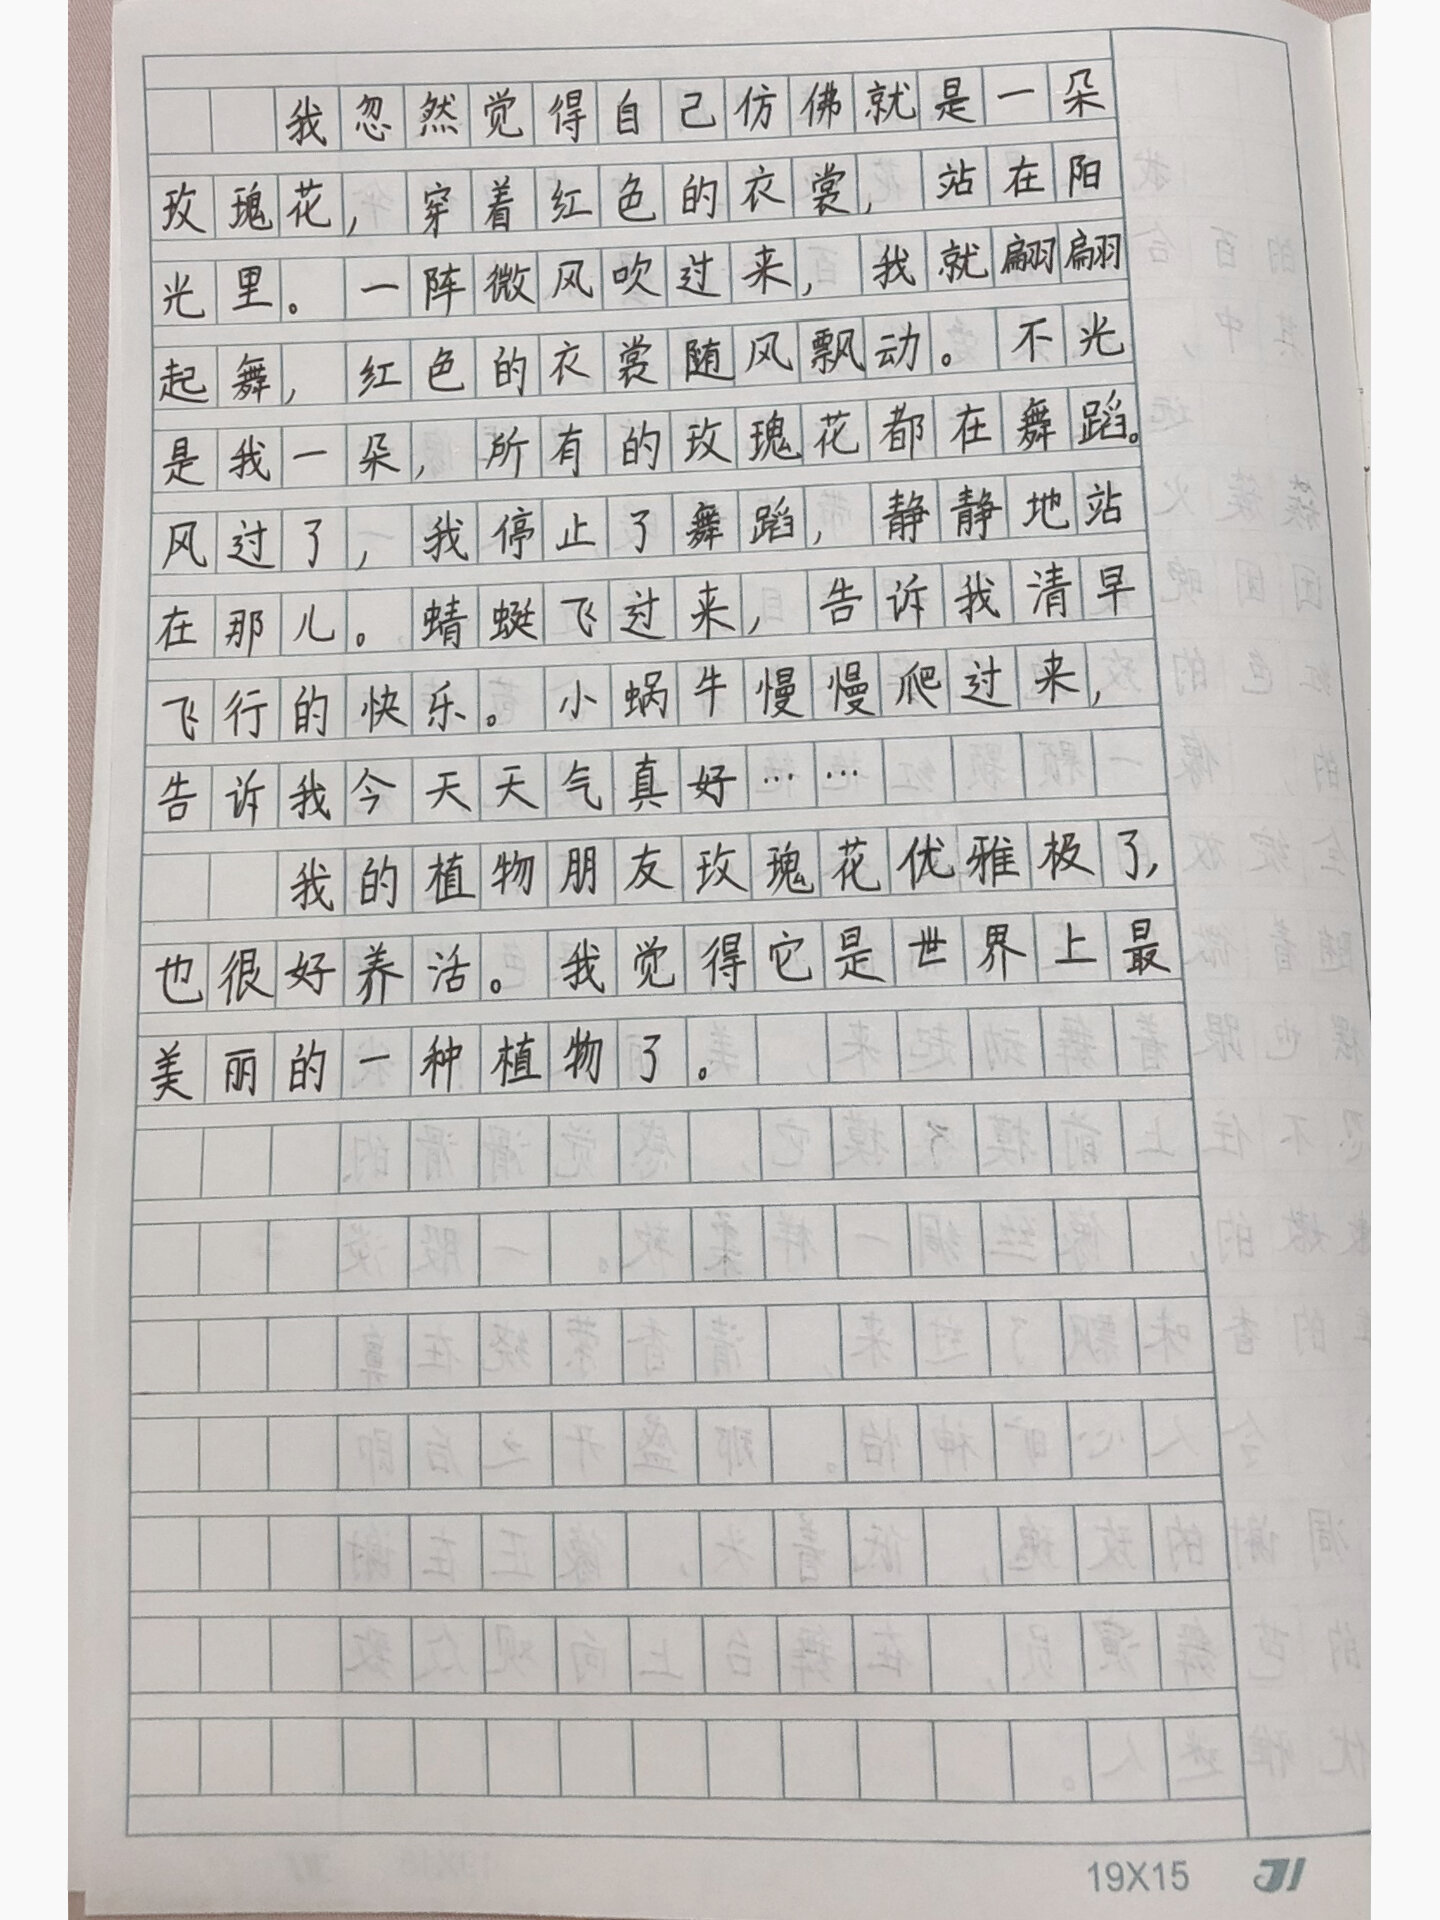 我忽然觉得自己仿佛就是一朵
玫瑰花，穿着红色的衣裳，站在阳
光里。一阵微风吹过来，我就翩翩
起舞，红色的衣裳随风飘动。不光
是我一朵，所有的玫瑰花都在舞蹈。
风过了，我停止了舞蹈，静静地站
在那儿。蜻蜓飞过来，告诉我清早
飞行的快乐。小蜗牛慢慢爬过来，
告诉我今天天气真好……
我的植物朋友玫瑰花优雅极了，
也很好养活。我觉得它是世界上最
美丽的一种植物了。
19X15